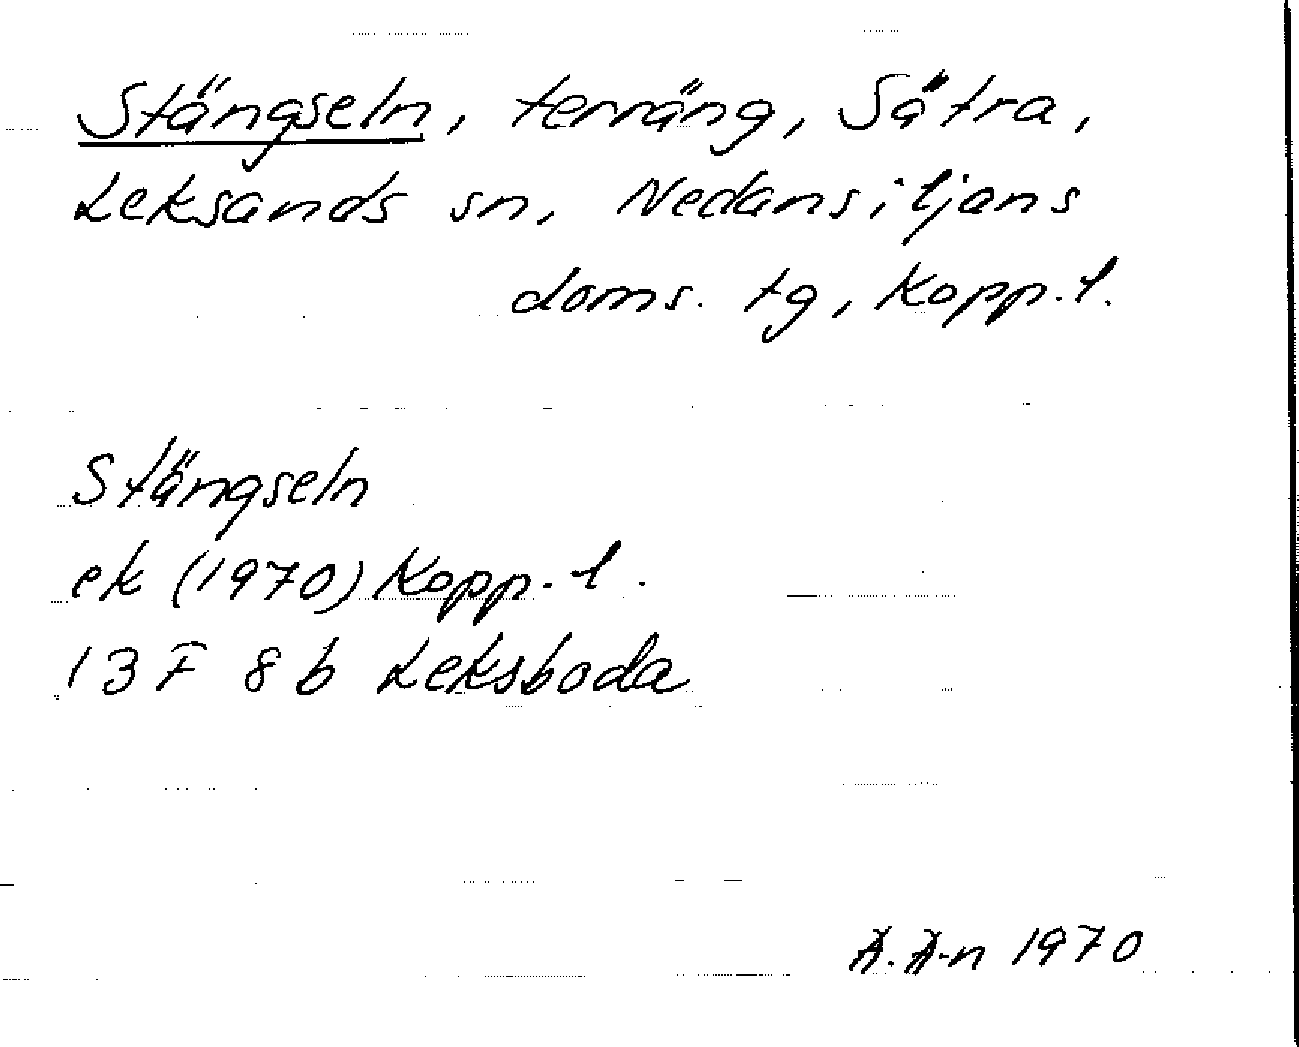 Stängseln, terräng, Sätra,
Leksands sn, Nedansiljans
doms. tg, Kopp. l.
Stängseln
ek (1970) Kopp. l.
13 F 8 b Leksboda
1970